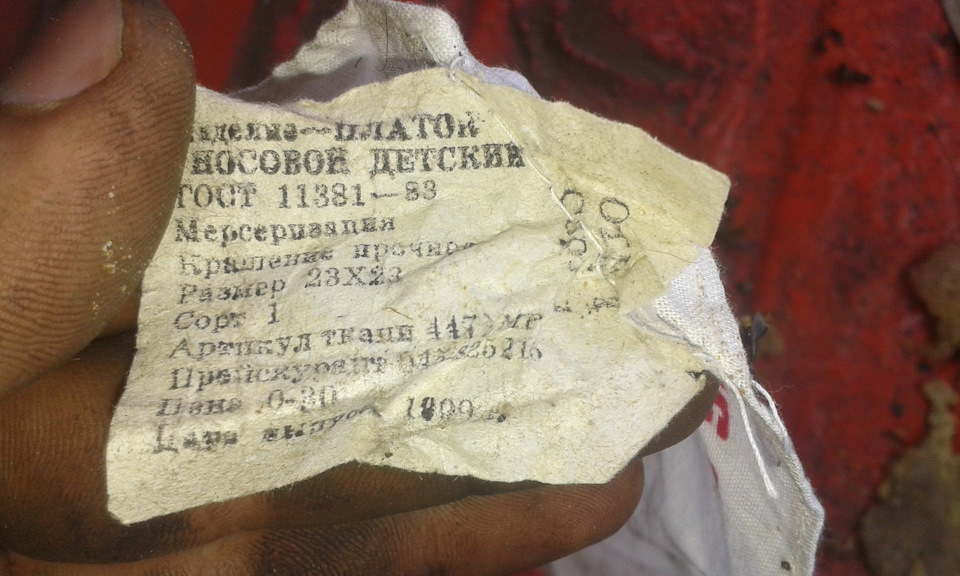 зделие — ПЛАТОК
НОСОВОЙ ДЕТСКИЙ
ГОСТ 11381—83
Мерсеризация
Крашение прочное
Размер 23Х23
Сорт 1
Артикул ткани 447
Прейскурант
Цена 0-30
Дата выпуск